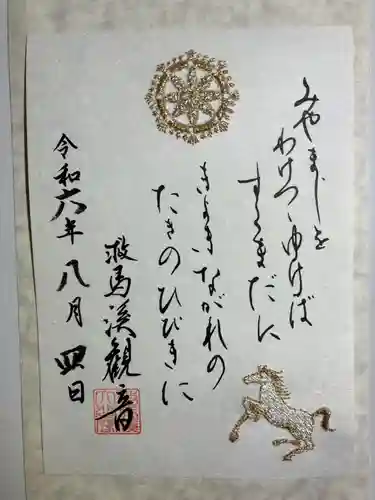 みやまじを
わけつゝゆけば
すさまだに
きよきながれの
たきのひびきに
救馬溪觀音
令和六年八月四日